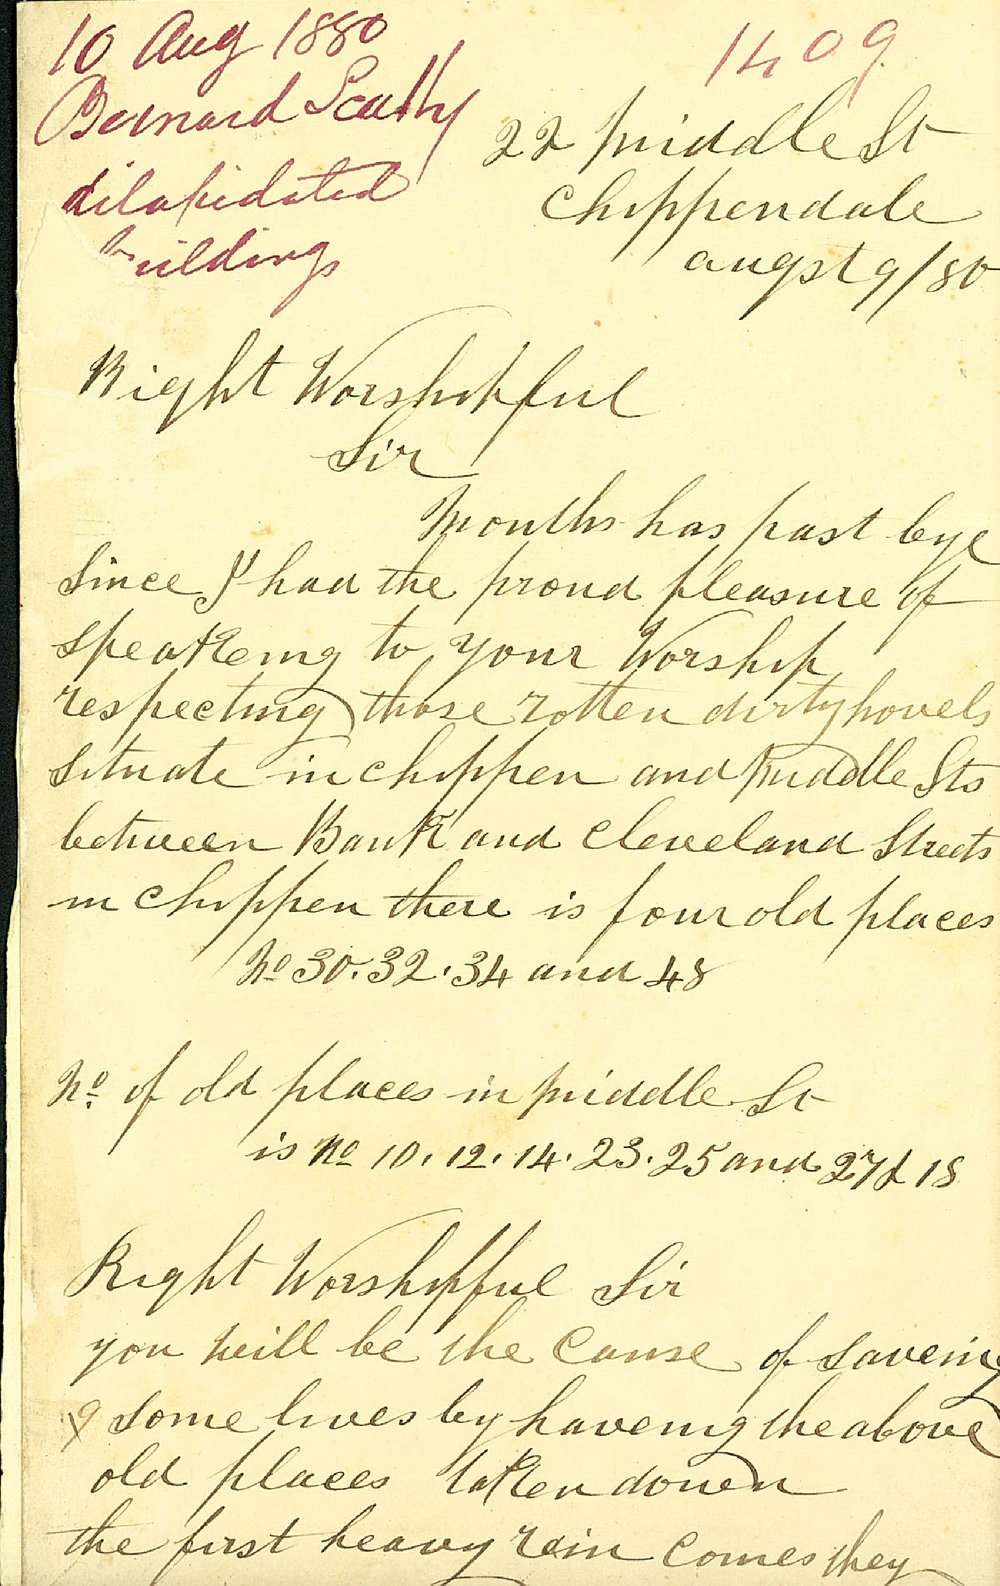 10 Aug 1880
Bernard Scully
dilapidated
buildings
1409
22 Middle St
Chippendale
augst 9/80
Right Worshipful
Sir
Months has past bye
Since I had the proud pleasure of
speakeing to your Worship
respecting those rotten dirty hovels
situate in Chippen and Middle Sts
between Bank and Cleveland Streets
in Chippen there is four old places
No 30. 32. 34 and 48
No. of old places in Middle St
is No 10. 12. 14. 23. 25 and 27 & 18
Right Worshipful Sir
you will be the Cause of saveing
some lives by haveing the above
old places taken down
the first heavy rein Comes they